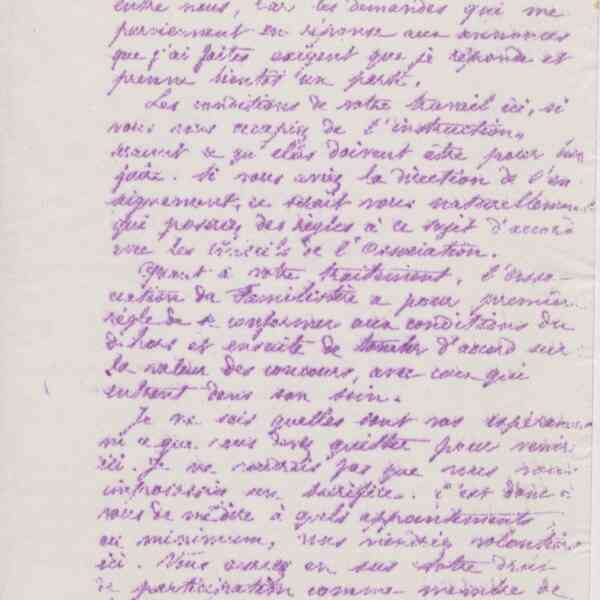 entre nous, car les demandes qui me
parviennent en réponse aux annonces
que j'ai faites exigent que je réponde et
prenne bientôt un parti.
Les conditions de votre travail ici, si
vous vous occupiez de l'instruction,
seraient ce qu'elles doivent être pour bien
faire. Si vous aviez la direction de l'en
seignement, ce serait vous naturellement
qui poseriez des règles à ce sujet d'accord
avec les Conseils de l'Association.
Quant à votre traitement, l'asso-
ciation du Familistère a pour première
règle de se conformer aux conditions du
dehors et ensuite de tomber d'accord sur
la valeur des concours, avec ceux qui
entrent dans son sein.
Je ne sais quelles sont vos espérances
ni ce que vous devez quitter pour venir
ici. Je ne voudrais pas que vous vous
imposassiez un sacrifice. C'est donc à
vous de me dire à quels appointements
au minimum, vous viendriez volontiers
ici. Vous auriez en sus votre droit
de participation comme membre de